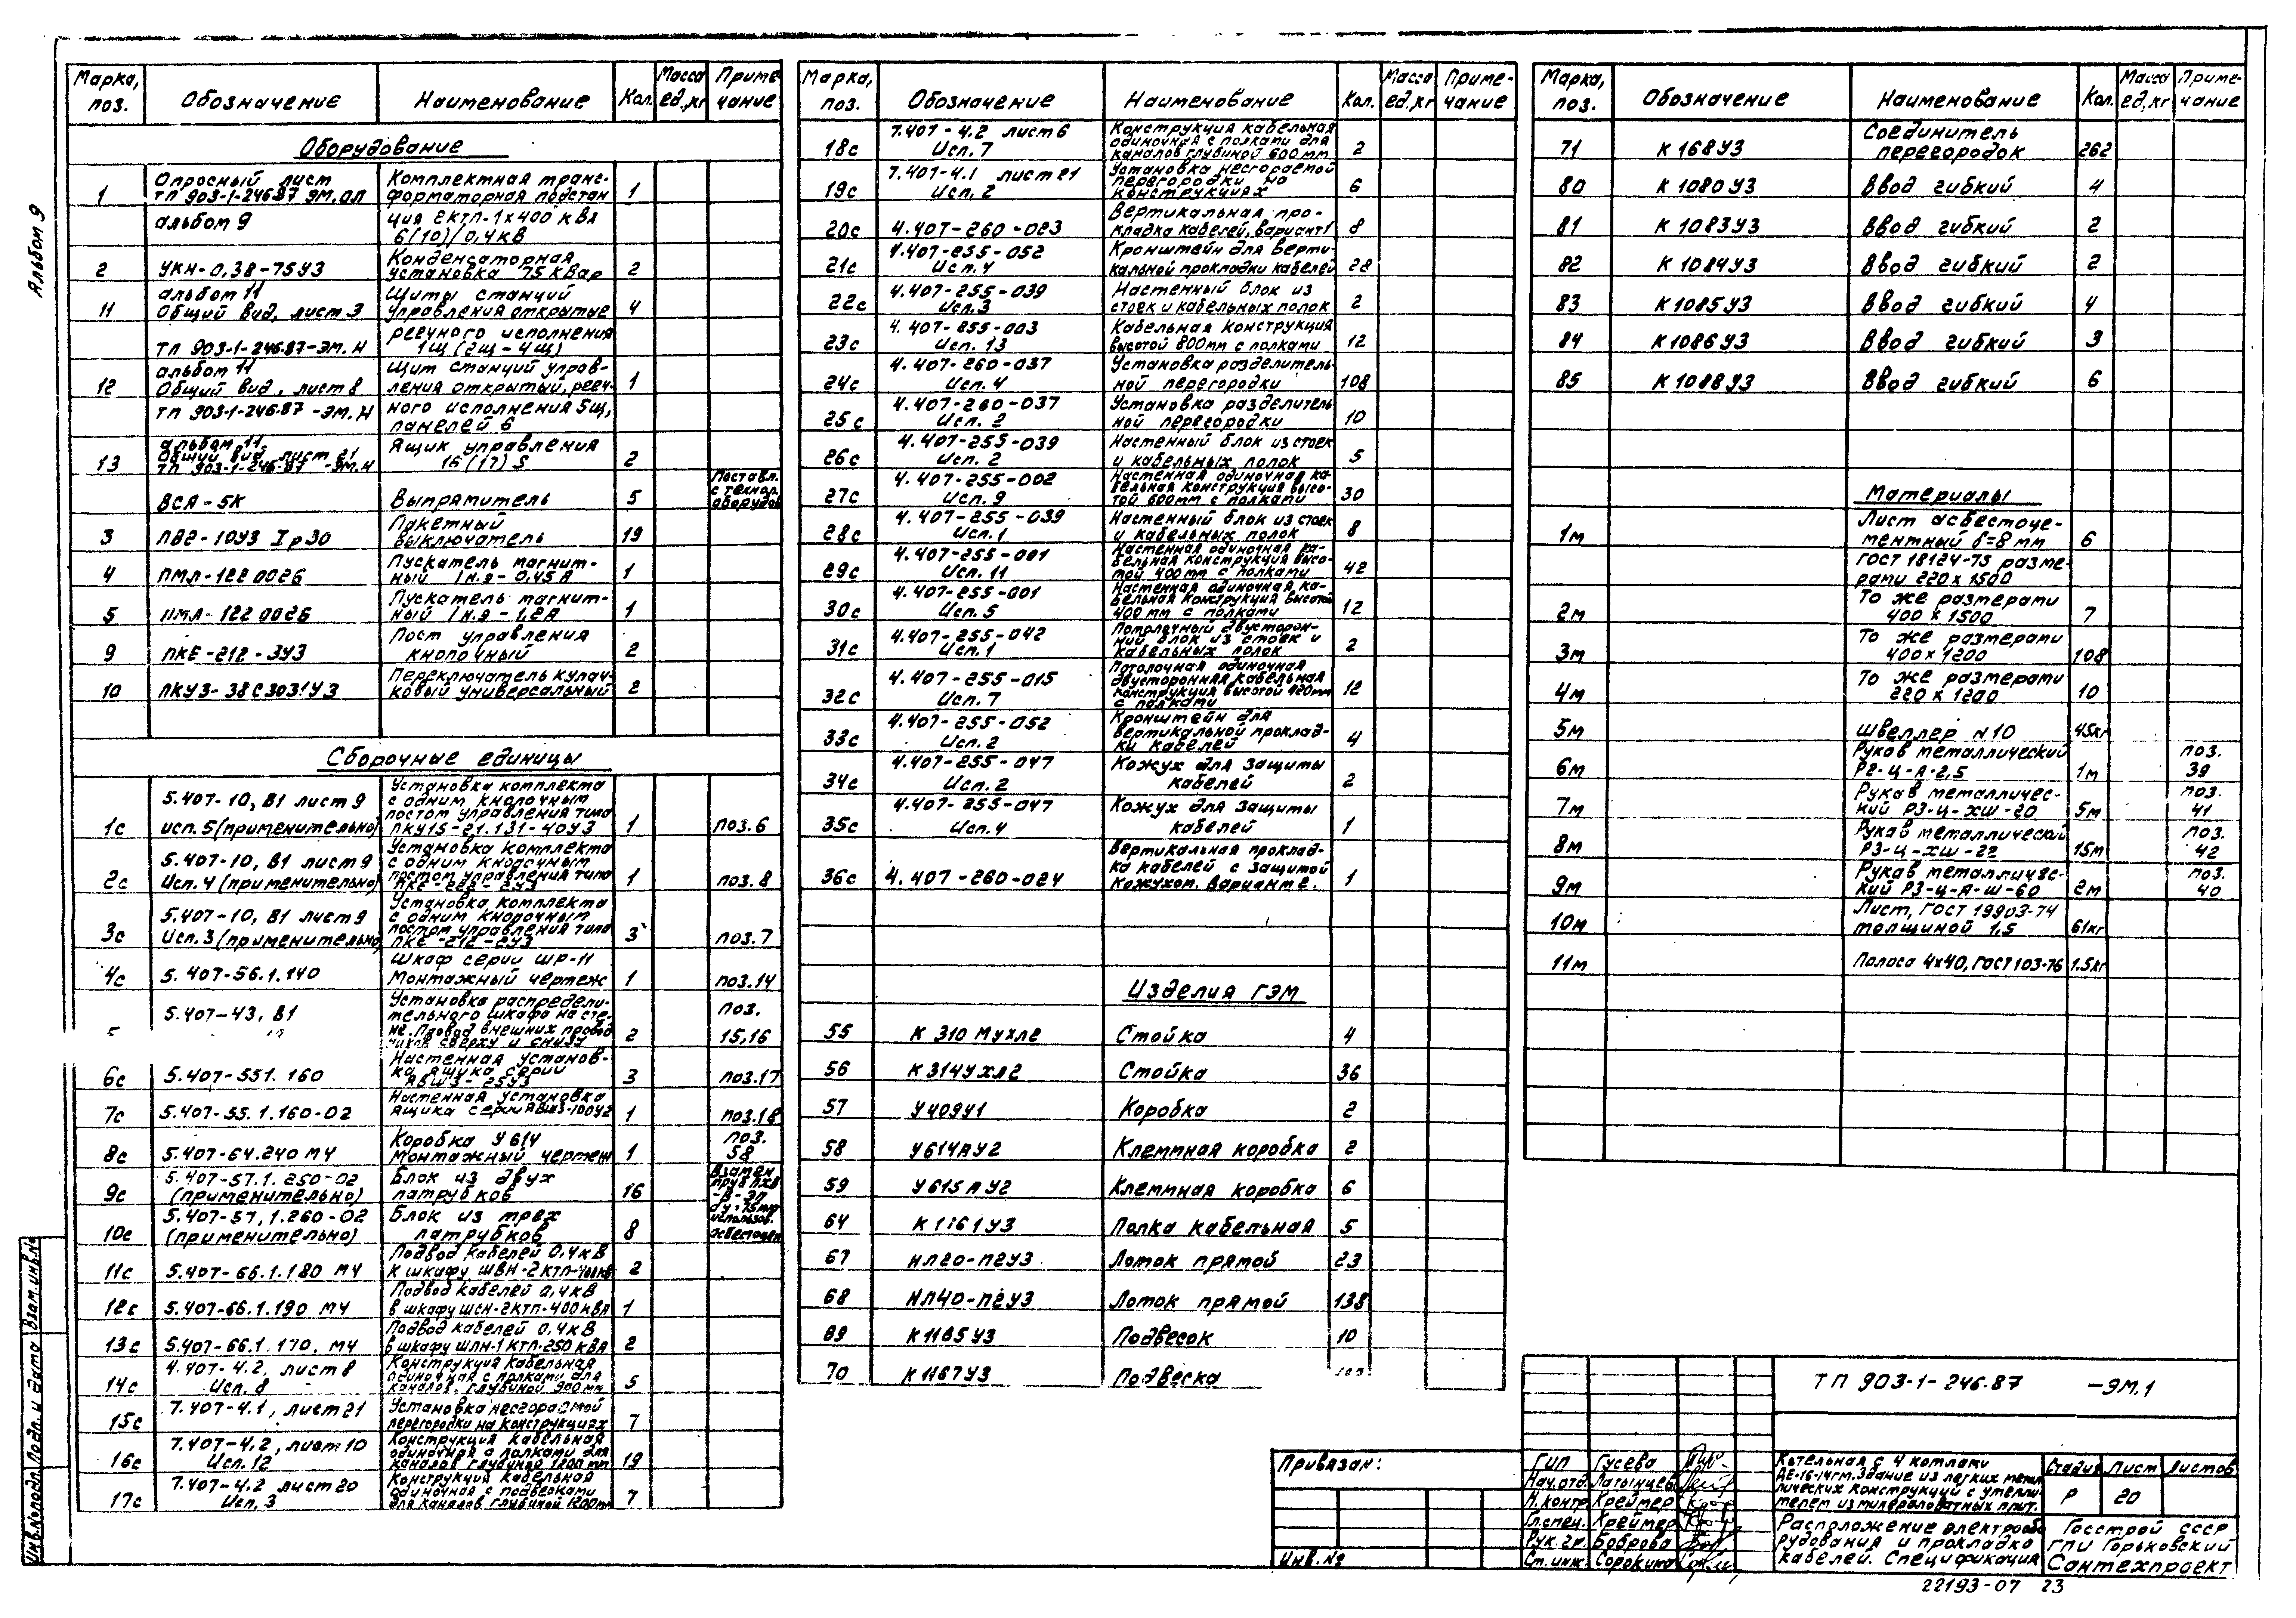 Альбом 9
Марка, поз. Обозначение Наименование Кол. Масса ед,кг Примечание
Оборудование
1 Опросный лист Комплектная транс- 1
ТП 903-1-246.87 ЭМ.ОЛ форматорная подстан
альбом 9 ция 2КТП-1х400 кВА
6(10)/0,4кВ
2 УКН-0,38-75У3 Конденсаторная установка 75 кВар 2
11 альбом 11 Щиты станций 4
Общий вид, лист 3 управления открытые
ТП 903-1-246.87-ЭМ.Н реечного исполнения
1щ (2щ-4щ)
12 альбом 11 Щит станций управ- 1
Общий вид, лист 8 ления открытый, рееч-
ТП 903-1-246.87-ЭМ.Н ного исполнения 5щ,
панелей 6
13 альбом 11 Ящик управления 2
Общий вид лист 21 16(17) S
ТП 903-1-246.87 -ЭМ.Н
ВСА-5К Выпрямитель 5 Поставл. с технол. оборудов
3 ПВ2-10У3 Ip30 Пакетный выключатель 19
4 ПМЛ-122002Б Пускатель магнит-ный Iн.э-0,45А 1
5 ПМЛ-122002Б Пускатель магнит-ный Iн.э-1,2А 1
9 ПКЕ-212-3У3 Пост управления кнопочный 2
10 ПКУ3-38С3031У3 Переключатель кулач-ковый универсальный 2
Сборочные единицы
1с 5.407-10, В1 лист 9 Установка комплекта
исп.5(применительно) с одним кнопочным постом управления типа ПКУ15-21.131-40У3 1 поз.6
2с 5.407-10, В1 лист 9 Установка комплекта
Исп.4(применительно) с одним кнопочным постом управления типа ПКЕ-222-2У3 1 поз.8
3с 5.407-10, В1 лист 9 Установка комплекта
Исп.3(применительно) с одним кнопочным постом управления типа ПКЕ-212-2У3 3 поз.7
4с 5.407-56.1.140 Шкаф серии ШР-11 Монтажный чертеж 1 поз.14
5 5.407-43, В1 Установка распредели-тельного шкафа на сте-не. Подвод внешних провод ников сверху и снизу 2 поз. 15,16
6с 5.407-551.160 Настенная установ-ка ящика серии ЯВШ3-25У3 3 поз.17
7с 5.407-55.1.160-02 Настенная установка ящика серии ЯВШ3-100У2 1 поз.18
8с 5.407-64.240 МЧ Коробка У614 Монтажный чертеж 1 поз. 58
9с 5.407-57.1.250-02 (применительно) Блок из двух патрубков 16 Взамен труб ПХВ -В-ЭП ду=75мм использов. асбестоцем
10с 5.407-57.1.260-02 (применительно) Блок из трех патрубков 8
11с 5.407-66.1.180 МЧ Подвод кабелей 0,4кВ к шкафу ШВН-2КТП-400кВ 2
12с 5.407-66.1.190 МЧ Подвод кабелей 0,4кВ в шкафу ШСН-2КТП-400кВА 1
13с 5.407-66.1.170. МЧ Подвод кабелей 0.4кВ в шкафу ШЛН-1КТП-250 кВА 2
14с 4.407-4.2, лист 8 Исп. 8 Конструкция кабельная одиночная с полками для каналов, глубиной 900мм 5
15с 7.407-4.1, лист 21 Установка несгораемой перегородки на конструкциях 7
16с 7.407-4.2, лист 10 Исп.12 Конструкция кабельная одиночная с полками для каналов глубиной 1200 мм 19
17с 7.407-4.2 лист 20 Исп. 3 Конструкция кабельная одиночная с подвесками для каналов глубиной 1200мм 7
Марка, поз. Обозначение Наименование Кол. Масса ед,кг Приме-чание
18с 7.407-4.2 лист 6 Исп. 7 Конструкция кабельная одиночная с полками для каналов глубиной 600мм 2
19с 7.407-4.1 лист 21 Исп. 2 Установка несгораемой перегородки на конструкциях 6
20с 4.407-260-023 Вертикальная про-кладка кабелей, вариант 1 8
21с 4.407-255-052 Исп.4 Кронштейн для верти-кальной прокладки кабелей 28
22с 4.407-255-039 Исп.3 Настенный блок из стоек и кабельных полок 2
23с 4.407-255-003 Исп. 13 Кабельная конструкция высотой 800мм с полками 12
24с 4.407-260-037 Исп. 4 Установка разделитель-ной перегородки 108
25с 4.407-260-037 Исп. 2 Установка разделитель ной перегородки 10
26с 4.407-255-039 Исп. 2 Настенный блок из стоек и кабельных полок 5
27с 4.407-255-002 Исп. 9 Настенная одиночная ка-бельная конструкция высо-той 600мм с полками 30
28с 4.407-255-039 Исп.1 Настенный блок из стоек и кабельных полок 8
29с 4.407-255-001 Исп. 11 Настенная одиночная ка-бельная конструкция высо-той 400мм с полками 42
30с 4.407-255-001 Исп. 5 Настенная одиночная ка-бельная конструкция высотой 400 мм с полками 12
31с 4.407-255-042 Исп.1 Потолочный двусторон-ний блок из стоек и кабельных полок 2
32с 4.407-255-015 Исп. 7 Потолочная одиночная двусторонняя кабельная конструкция высотой 420мм с полками 12
33с 4.407-255-052 Исп. 2 Кронштейн для вертикальной проклад-ки кабелей 4
34с 4.407-255-047 Исп. 2 Кожух для защиты кабелей 2
35с 4.407-255-047 Исп. 4 Кожух для защиты кабелей 1
36с 4.407-260-024 Вертикальная проклад-ка кабелей с защитой кожухом. Вариант 2. 1
Изделия ГЭМ
55 К 310 Мухл2 Стойка 4
56 К314Ухл2 Стойка 36
57 У409У1 Коробка 2
58 У614АУ2 Клеммная коробка 2
59 У615АУ2 Клеммная коробка 6
64 К1161У3 Полка кабельная 5
67 НЛ20-П2У3 Лоток прямой 23
68 НЛ40-П2У3 Лоток прямой 138
69 К1165У3 Подвесок 10
70 К1167У3 Подвеска
Марка, поз. Обозначение Наименование Кол. Масса ед,кг Приме-чание
71 К168У3 Соединитель перегородок 262
80 К1080У3 Ввод гибкий 4
81 К1083У3 Ввод гибкий 2
82 К1084У3 Ввод гибкий 2
83 К1085У3 Ввод гибкий 4
84 К1086У3 Ввод гибкий 3
85 К1088У3 Ввод гибкий 6
Материалы
1м Лист асбестоце-ментный б=8 мм 6
ГОСТ 18124-75 разме-рами 220х1500
2м То же размерами 400х1500 7
3м То же размерами 400х1200 108
4м То же размерами 220х1200 10
5м Швеллер N10 45кг
6м Рукав металлический Р2-Ц-А-2,5 1м поз. 39
7м Рукав металличес-кий Р3-Ц-ХШ-20 5м поз. 41
8м Рукав металлический Р3-Ц-ХШ-22 15м поз. 42
9м Рукав металличес-кий Р3-Ц-А-Ш-60 2м поз. 40
10м Лист, ГОСТ 19903-74 толщиной 1,5 61кг
11м Полоса 4х40, ГОСТ 103-76 1.5кг
ТП 903-1-246.87 -ЭМ.1
Привязан:
Инв.№
ГИП Гусева
Нач.отд. Латынцев
Н.контр. Креймер
Гл.спец. Креймер
Рук.гр. Боброва
Ст.инж. Сорокина
Котельная с 4 котлами
ДЕ-16-14гм. Здание из легких метал
лических конструкций с утепли
телем из минераловатных плит.
Стадия Лист Листов
Р 20
Расположение электрообо
рудования и прокладка
кабелей. Спецификация
Госстрой СССР
ГПИ Горьковский
Сантехпроект
22193-07 23
Инв.№подл. Подп. и дата Взам.инв.№